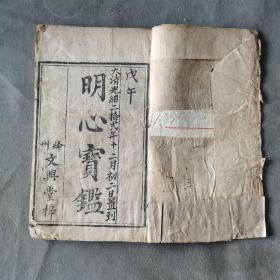 戊午
大清光緒二拾年十二月初二日置
明心寶鑑
州
文興堂梓